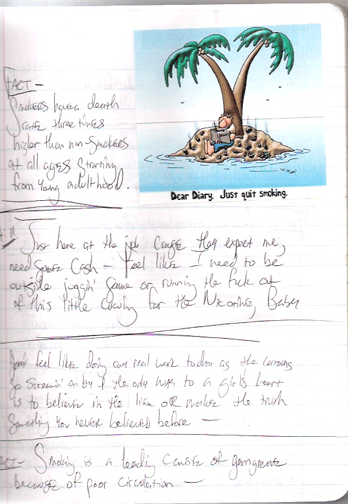 FACT -
Smokers have a death
rate three times
higher than non-smokers
at all ages starting
from young adulthood.
Dear Diary. Just quit smoking.
Just here at the job cause they expect me,
need some cash - feel like I need to be
outside joggin' some or running the fuck out
of this little craving for the Nicotine, Baby
Don't feel like doing any real work today as the
so screamin' on by if the only way to a girl's heart
is to believe in the lie OR make the truth
something you never believed before -
Smoking is a leading cause of gangrene
because of poor circulation -